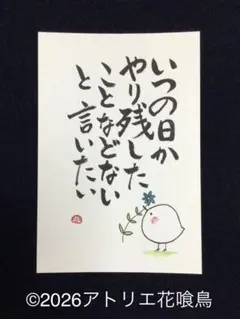 いつの日か
やり残した
ことなどない
と言いたい
©2026アトリエ花喰鳥